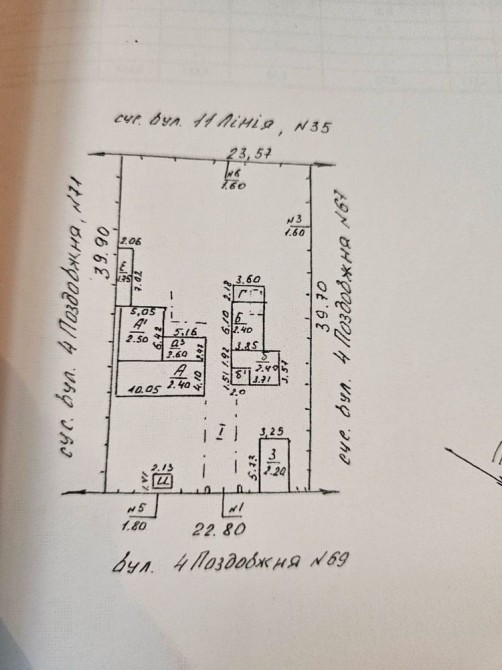 сус. вул. 11 Лінія, №35
23,57
№6
1.60
№3
1.60
сус. вул. 4 Поздовжня, №71
39.90
2.06
Е
1.75
7.02
5,05
А¹
2.50
6.42
5,16
а³
2.60
2.92
А
2.40
4.10
10.05
3,60
2.12
Г
Б
2.40
6.10
3.85
1.92
б
2.40
3.57
б¹
1.51
3.71
2.0
39.70
сус. вул. 4 Поздовжня №67
I
3,25
З
2.20
5.73
2.13
Ш
№5
1.80
№1
22.80
вул. 4 Поздовжня №69